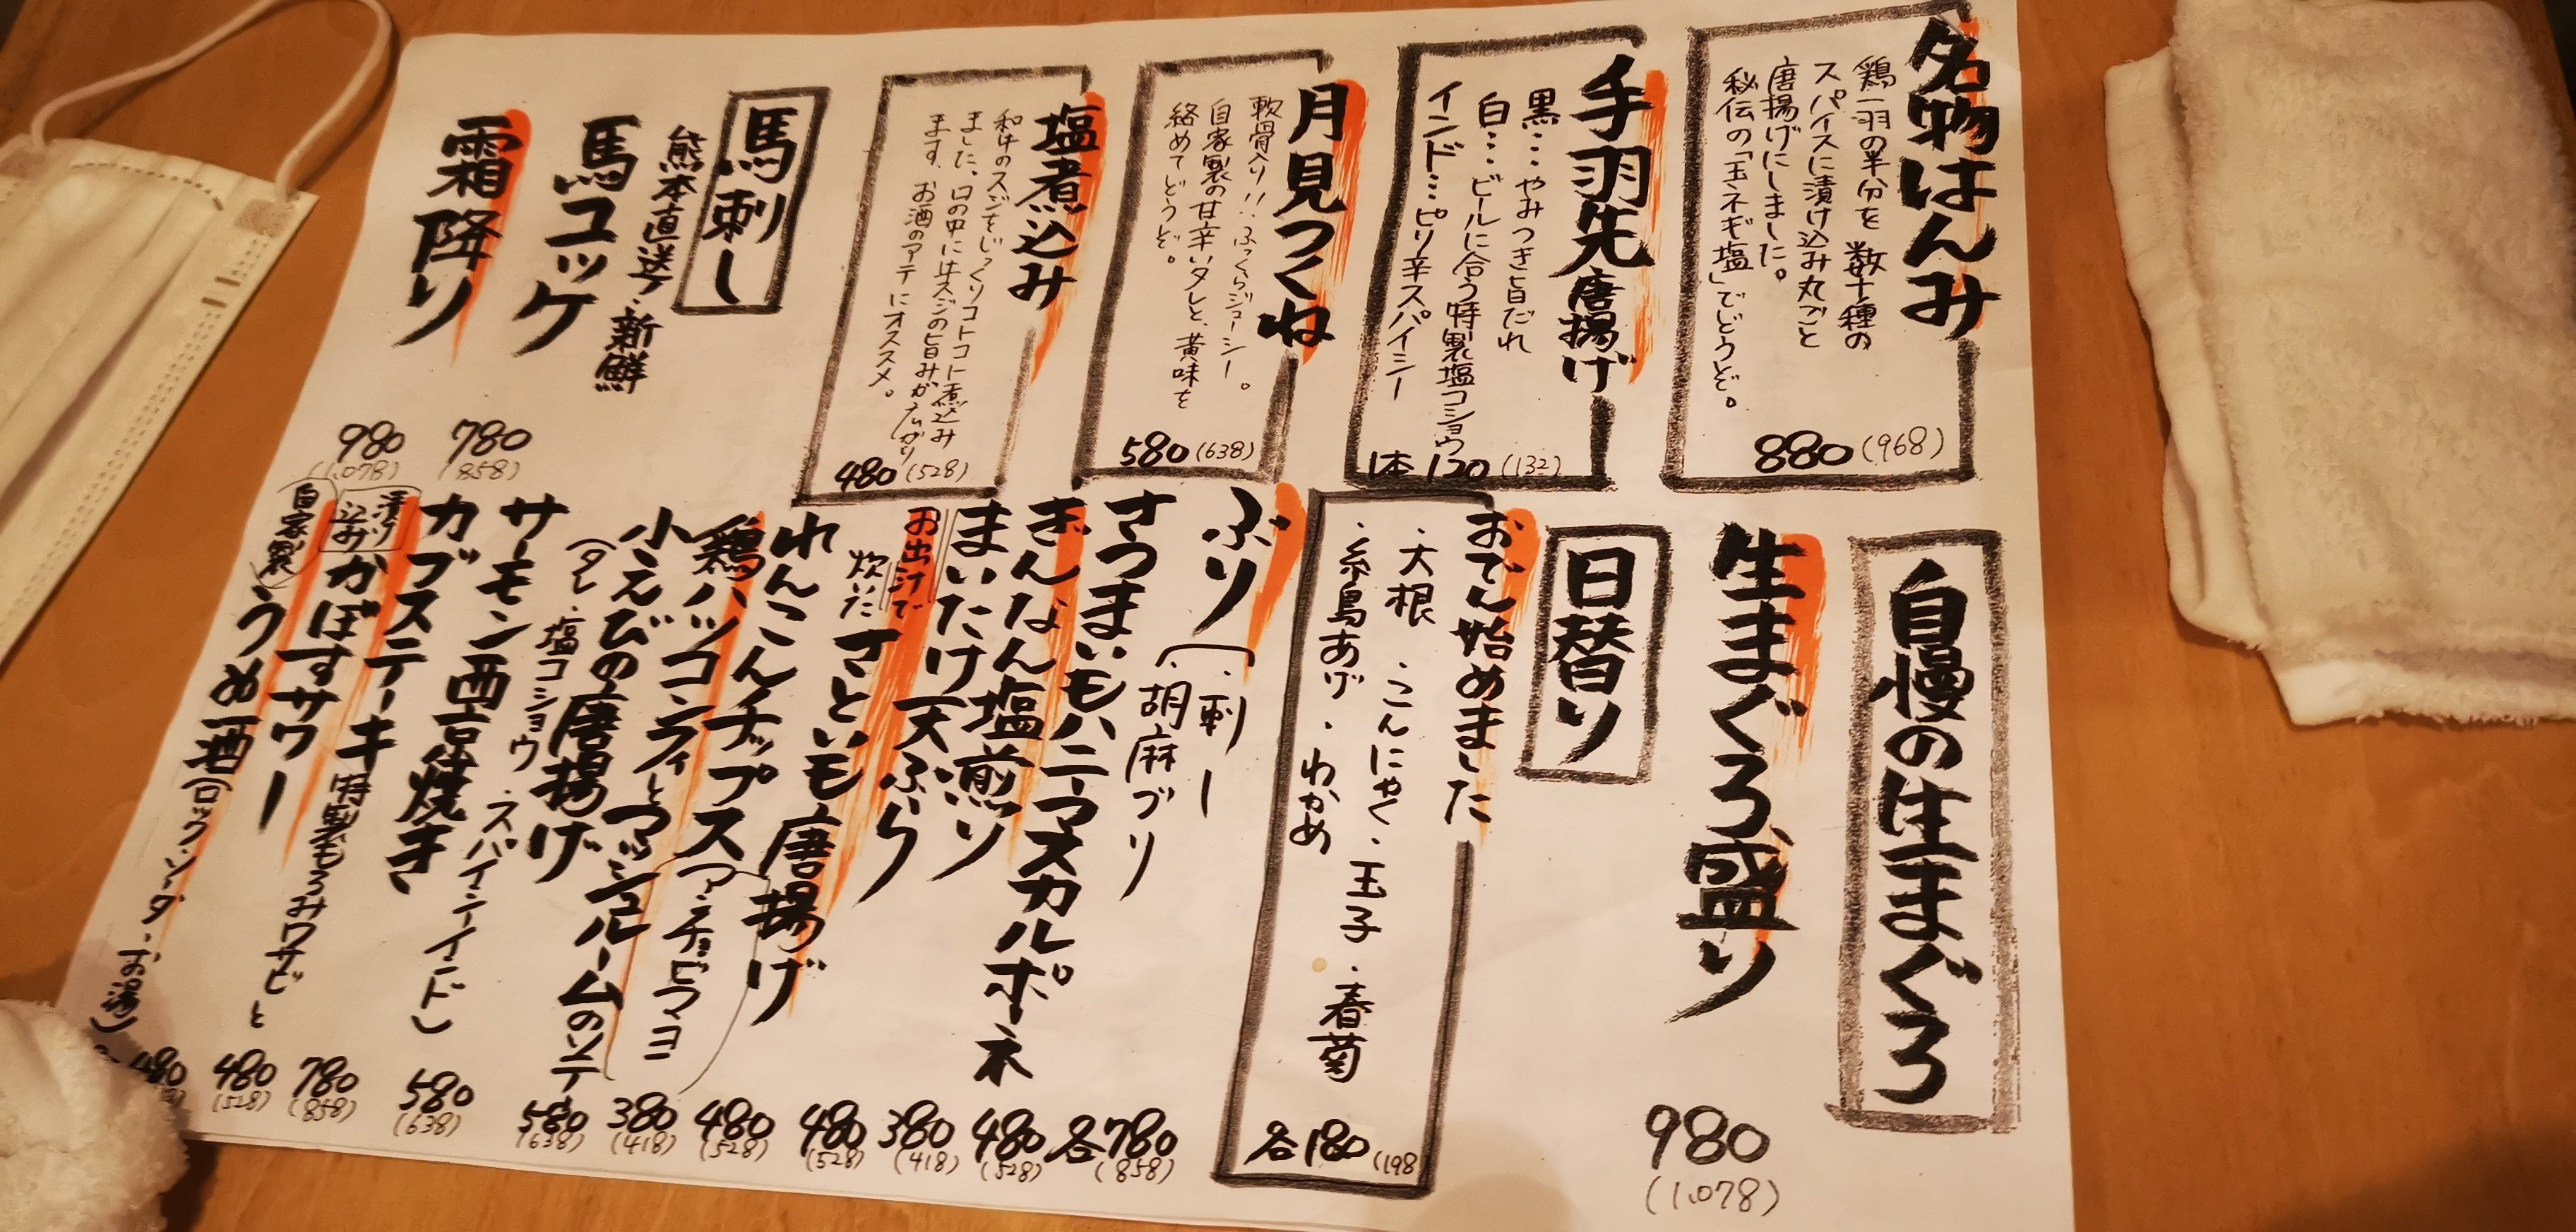 名物はんみ
鶏一羽の半分を数十種の
スパイスに漬け込み丸ごと
唐揚げにしました。
秘伝の「玉ネギ塩」でどうぞ。
880(968)
手羽先唐揚げ
黒…やみつき旨だれ
白…ビールに合う特製塩コショウ
インド…ピリ辛スパイシー
1本 120(132)
月見つくね
軟骨入り!!ふっくらジューシー。
自家製の甘辛いタレと、黄味を
絡めてどうぞ。
580(638)
塩煮込み
和牛のスジをじっくりコトコト煮込み
ました。口の中に牛スジの旨みが広がり
ます。お酒のアテにオススメ。
480(528)
馬刺し
熊本直送・新鮮
馬ユッケ
780
(858)
霜降り
980
(1.078)
自慢の生まぐろ
生まぐろ盛り
980
(1.078)
日替り
おでん始めました
・大根・こんにゃく・玉子・春菊
・糸島あげ・わかめ
各180(198
ぶり
・刺し
・胡麻ブリ
各780
(858)
さつまいもハニーマスカルポーネ
480
(528)
ぎんなん塩煎り
380
(418)
まいたけ天ぷら
480
(528)
お出汁で
炊いた
さといも唐揚げ
480
(528)
れんこんチップス(アンチョビマヨ)
380
(418)
鶏ハツコンフィとマッシュルームのソテー
580
(638)
小えびの唐揚げ
(タレ・塩コショウ・スパイシーインド)
580
(638)
サーモン西京焼き
カブステーキ 特製もろみワサビと
漬け
込み
かぼすサワー
自家製
うめ酒(ロック・ソーダ・お湯)
780
(858)
480
(528)
480